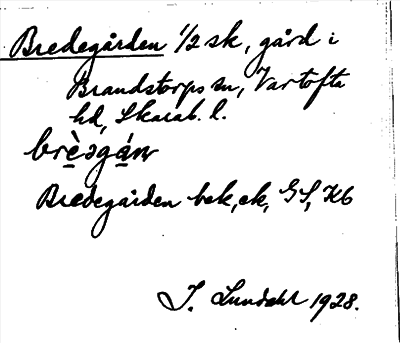 Bredegården 1/2 sk, gård i
Brandstorps sn, Vartofta
hd, Skarab. l.
brèəgán
Bredegården bek, ek, GS, Kb
I. Lundahl 1928.